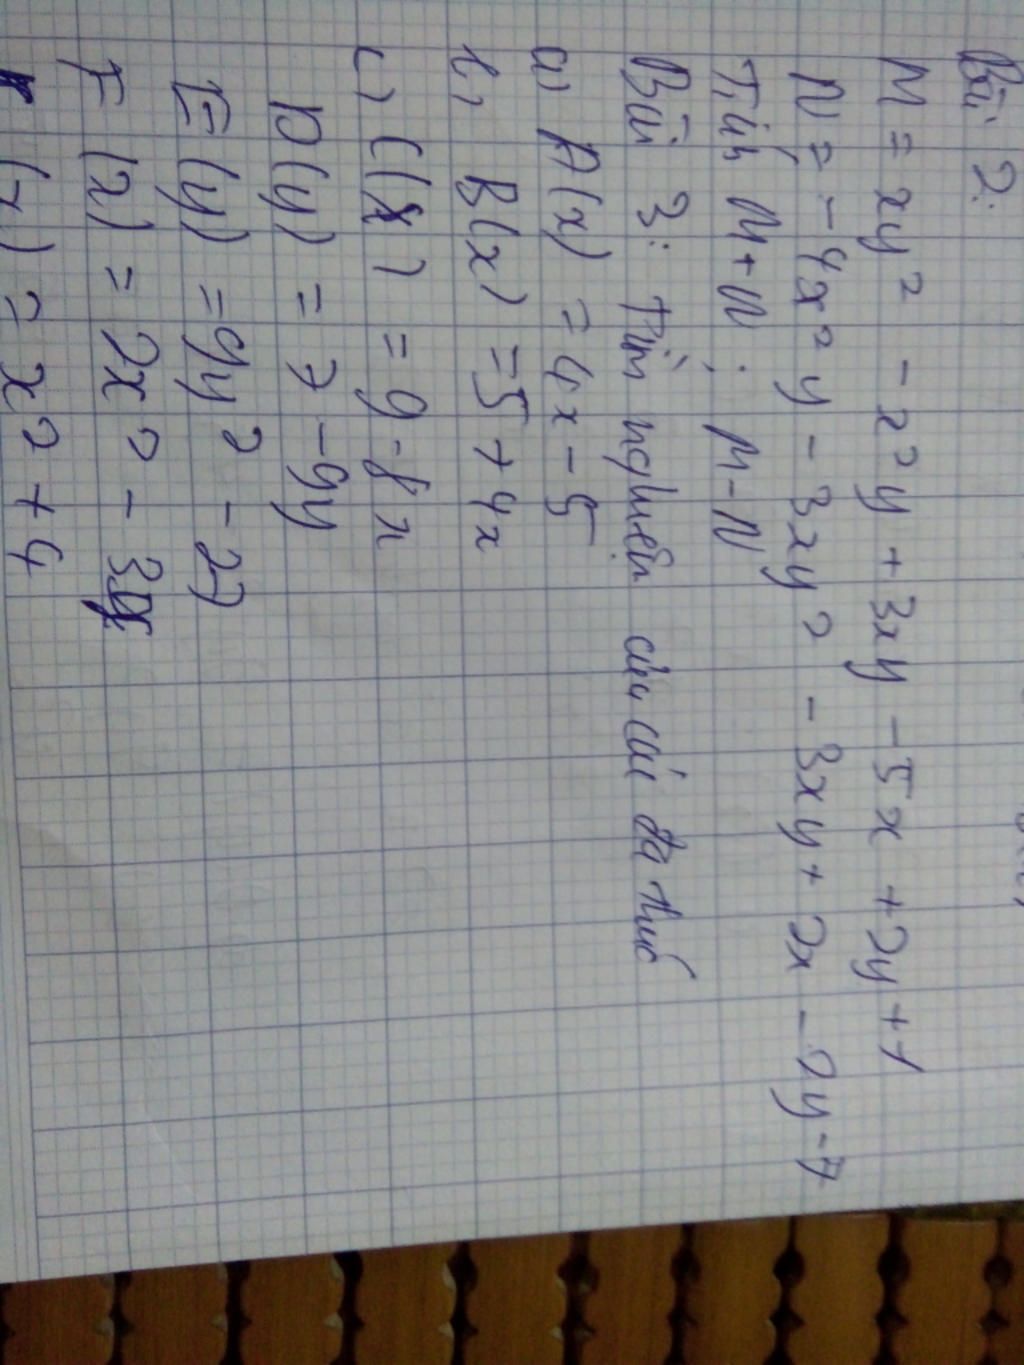 Bài 2:
M = xy² - x²y + 3xy - 5x + 2y + 1
N = -4x²y - 3xy² - 3xy + 2x - 2y - 7
Tính M+N ; M-N
Bài 3: Tìm nghiệm của các đa thức
a, A(x) = 4x - 5
b, B(x) = 5 + 4x
c, C(x) = 9 - 8x
D(y) = 7 - 9y
E(y) = 9y² - 27
F(x) = 2x² - 3
= x² + 4